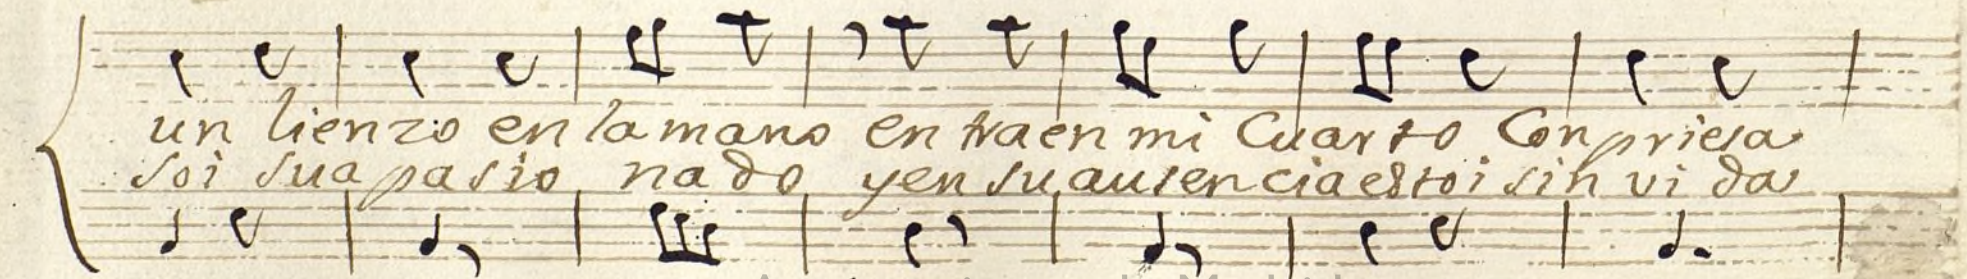 un lienzo en la mano entra en mi Cuarto Con priesa
soi su apasionado y en su ausencia estoi sin vida